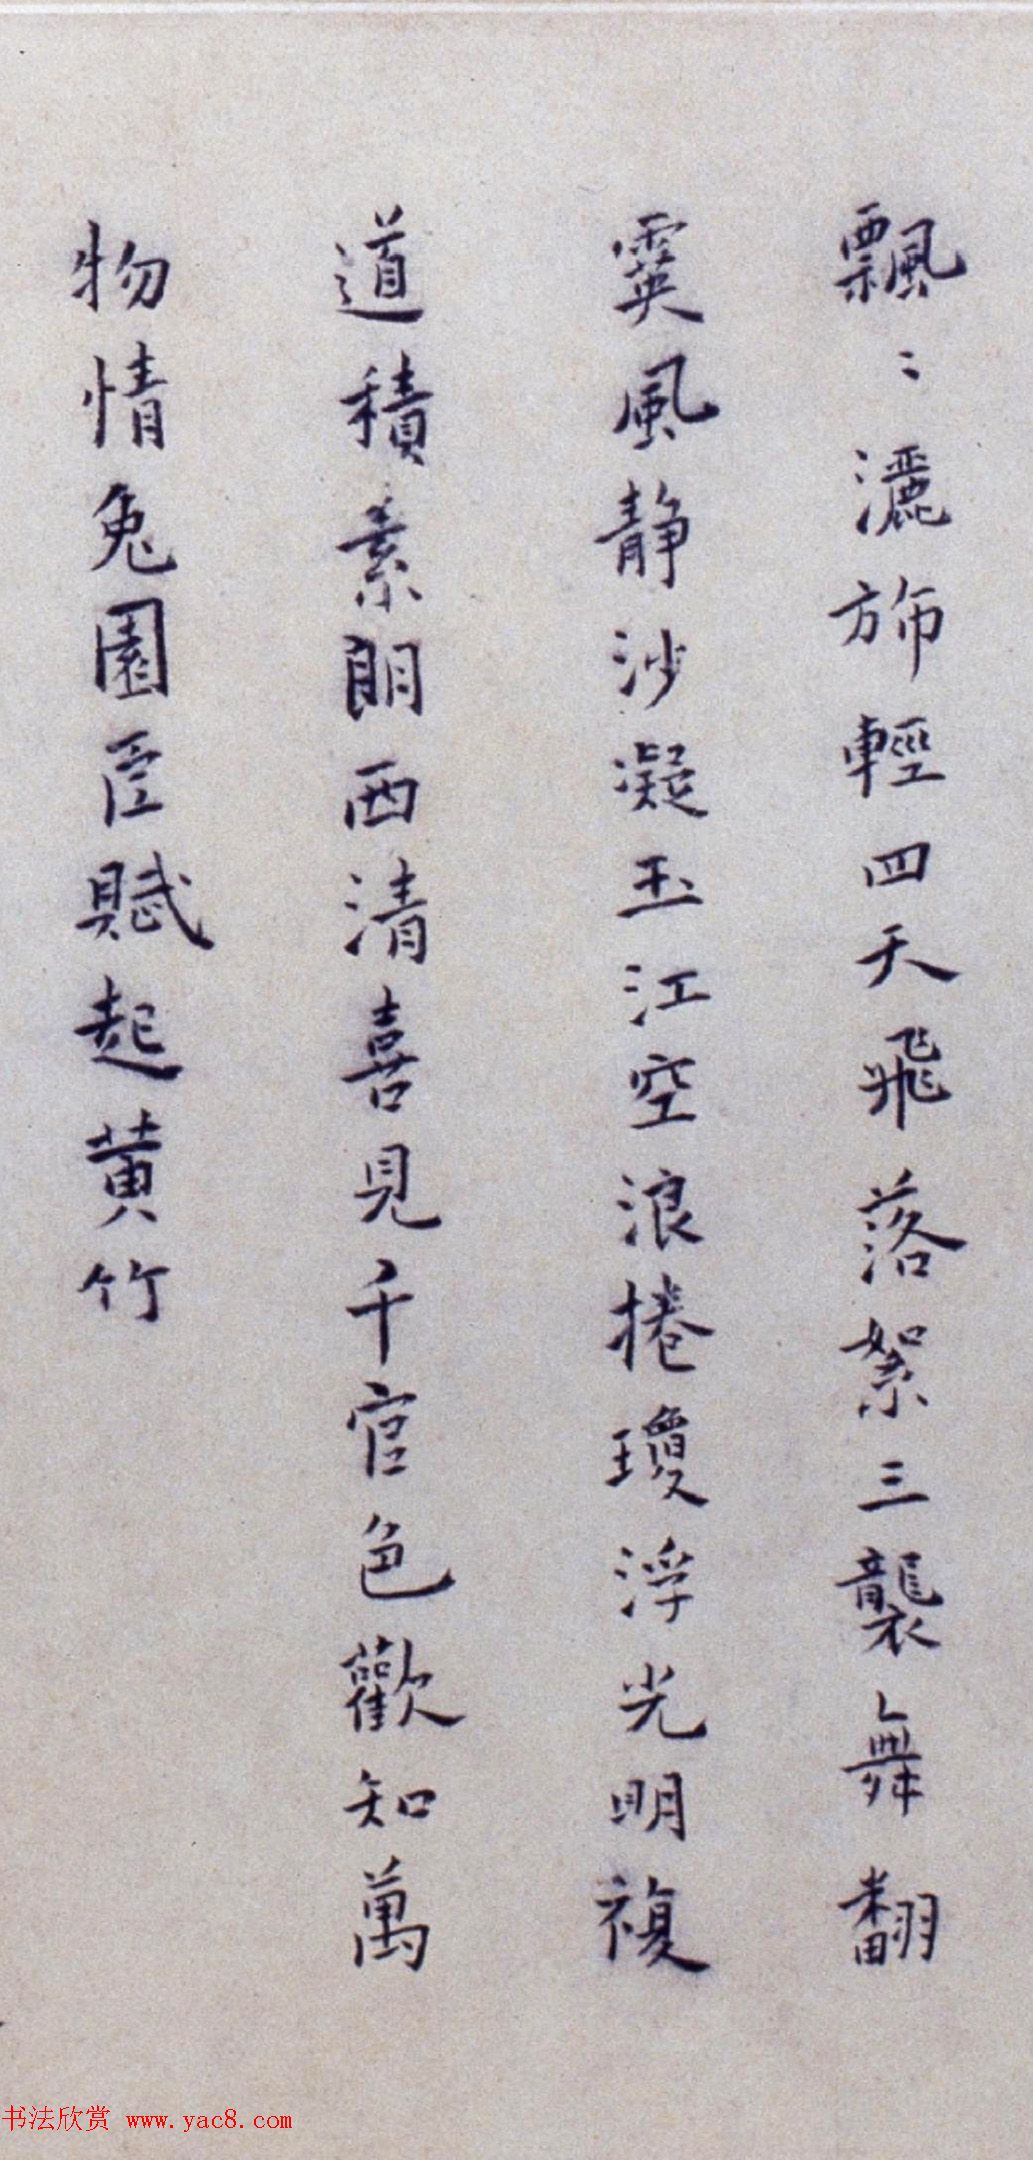 飄〻灑斾輕四天飛落絮三襲舞翻
霙風静沙凝玉江空浪捲瓊浮光明複
道積素朗西清喜見千官色歡知萬
物情兔園臣賦起黄竹
书法欣赏 www.yac8.com